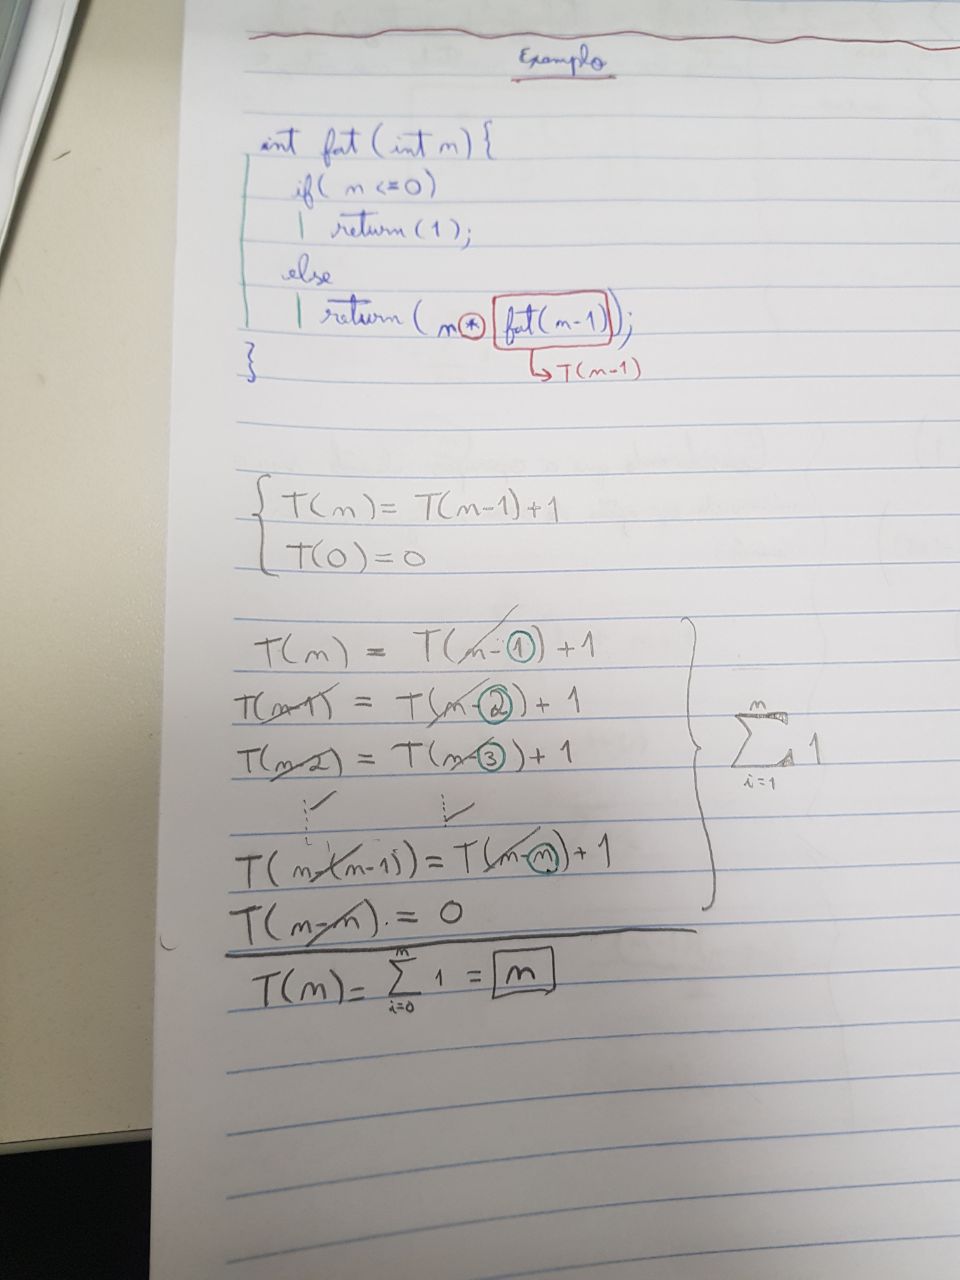 Exemplo
int fat (int n) {
if( n <= 0)
return (1);
else
return ( n * fat(n-1));
}
T(n-1)
T(n) = T(n-1)+1
T(0) = 0
T(n) = T(n-1)+1
T(n-1) = T(n-2)+1
T(n-2) = T(n-3)+1
T(n-(n-1)) = T(n-n)+1
T(n-n) = 0
n
∑ 1
i=1
T(n) = n ∑ i=0 1 = n